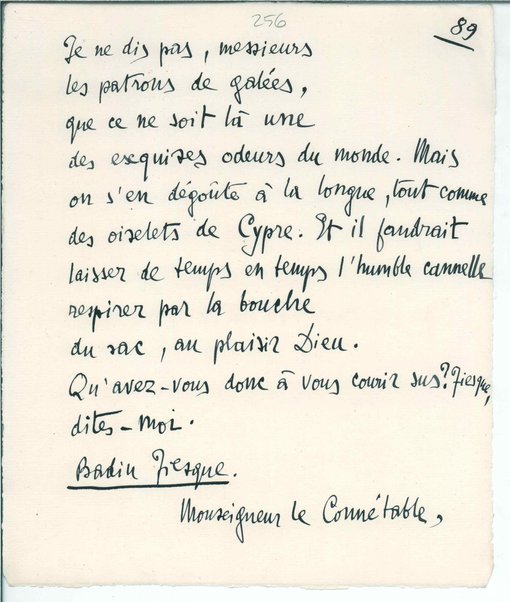 256
89
Je ne dis pas, messieurs
les patrons de galées,
que ce ne soit là une
des exquises odeurs du monde. Mais
on s'en dégoûte à la longue, tout comme
des oiselets de Cypre. Et il faudrait
laisser de temps en temps l'humble cannelle
respirer par la bouche
du sac, au plaisir Dieu.
Qu'avez-vous donc à vous courir sus? Fiesque,
dites-moi.
Badin Fiesque.
Monseigneur le Connétable,